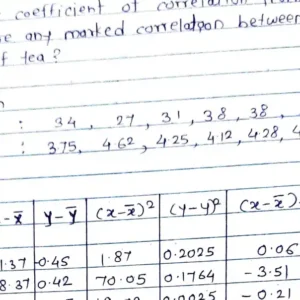 coefficient of correlation
any marked correlation between
f tea?
: 34, 27, 31, 38, 38,
: 3.75, 4.62, 4.25, 4.12, 4.28, 4
-x̅ y-y̅ (x-x̅)² (y-y̅)² (x-x̅)
1.37 -0.45 1.87 0.2025 0.06
8.37 0.42 70.05 0.1764 -3.51
0.0025 -0.21